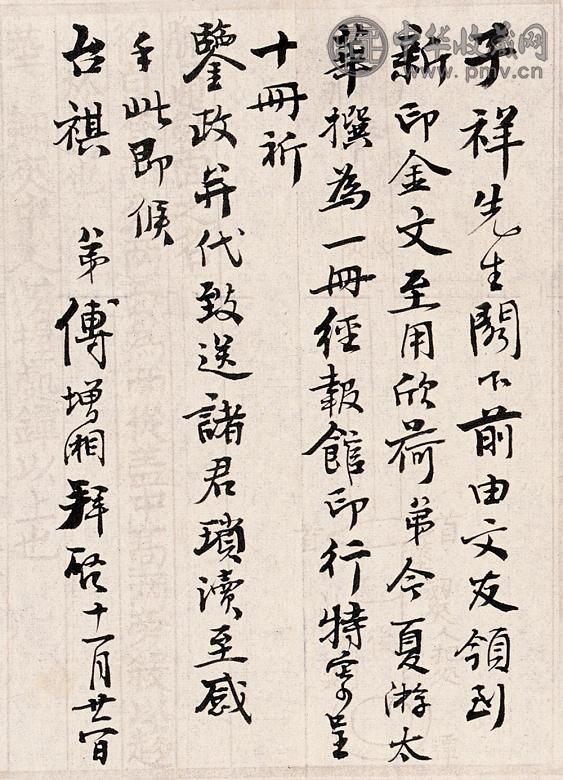 子祥先生閣下前由文友領到
新印金文至用欣荷弟今夏游太
華撰為一冊經報館印行特寄呈
十冊祈
鑒政并代致送諸君瑣瀆至感
手此即候
台祺 弟傅增湘拜啓十一月廿一日
中华收藏网
www.pmv.cn